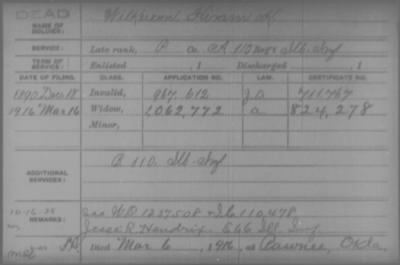 DEAD
NAME OF SOLDIER: Wilkerson, Hiram K.
SERVICE: Late rank, Co. 110 Reg't Ill. Inf
TERM OF SERVICE: Enlisted , 1 Discharged , 1
DATE OF FILING. CLASS. APPLICATION NO. LAW. CERTIFICATE NO.
1890 Dec 18 Invalid, 967,612 711,767
1916 Mar 16 Widow, 1,062,772 a 824,278
Minor,
ADDITIONAL SERVICES: B 110. Ill. Inf
10-16-25
REMARKS: W.O. 1237508 110,478
Jesse R. Hendrix. E 66 Ill. Inf.
Died Mar 6, 1916, at Pawnee, Okla.